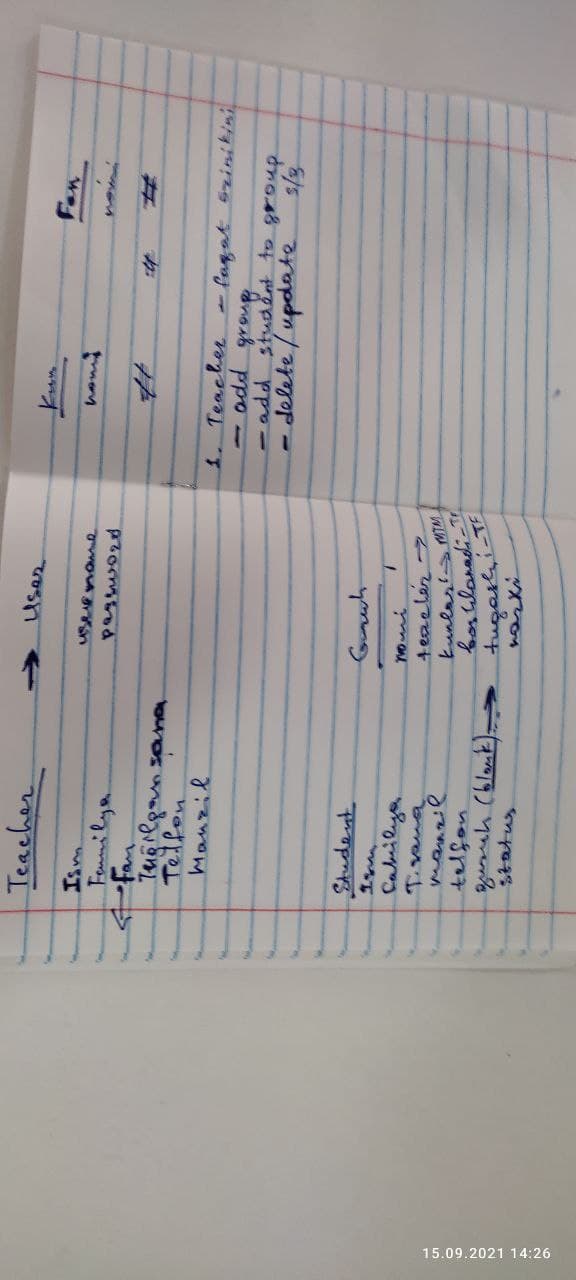 Teacher → User
Ism
Familya
← Fan
Tug'ilgan sana
Telfon
Manzil
username
password
Student
Ism
Familya
T. sana
manzil
telfon
guruh (blank) →
status
Guruh
nomi
teacher →
kunlari → MTM
boshlanadi - TF
tugashi - TF
narxi
Kun
nomi
#
#
Fan
nomi
#
1. Teacher - faqat özinikini
- add group
- add student to group
- delete/update s/g
15.09.2021 14:26